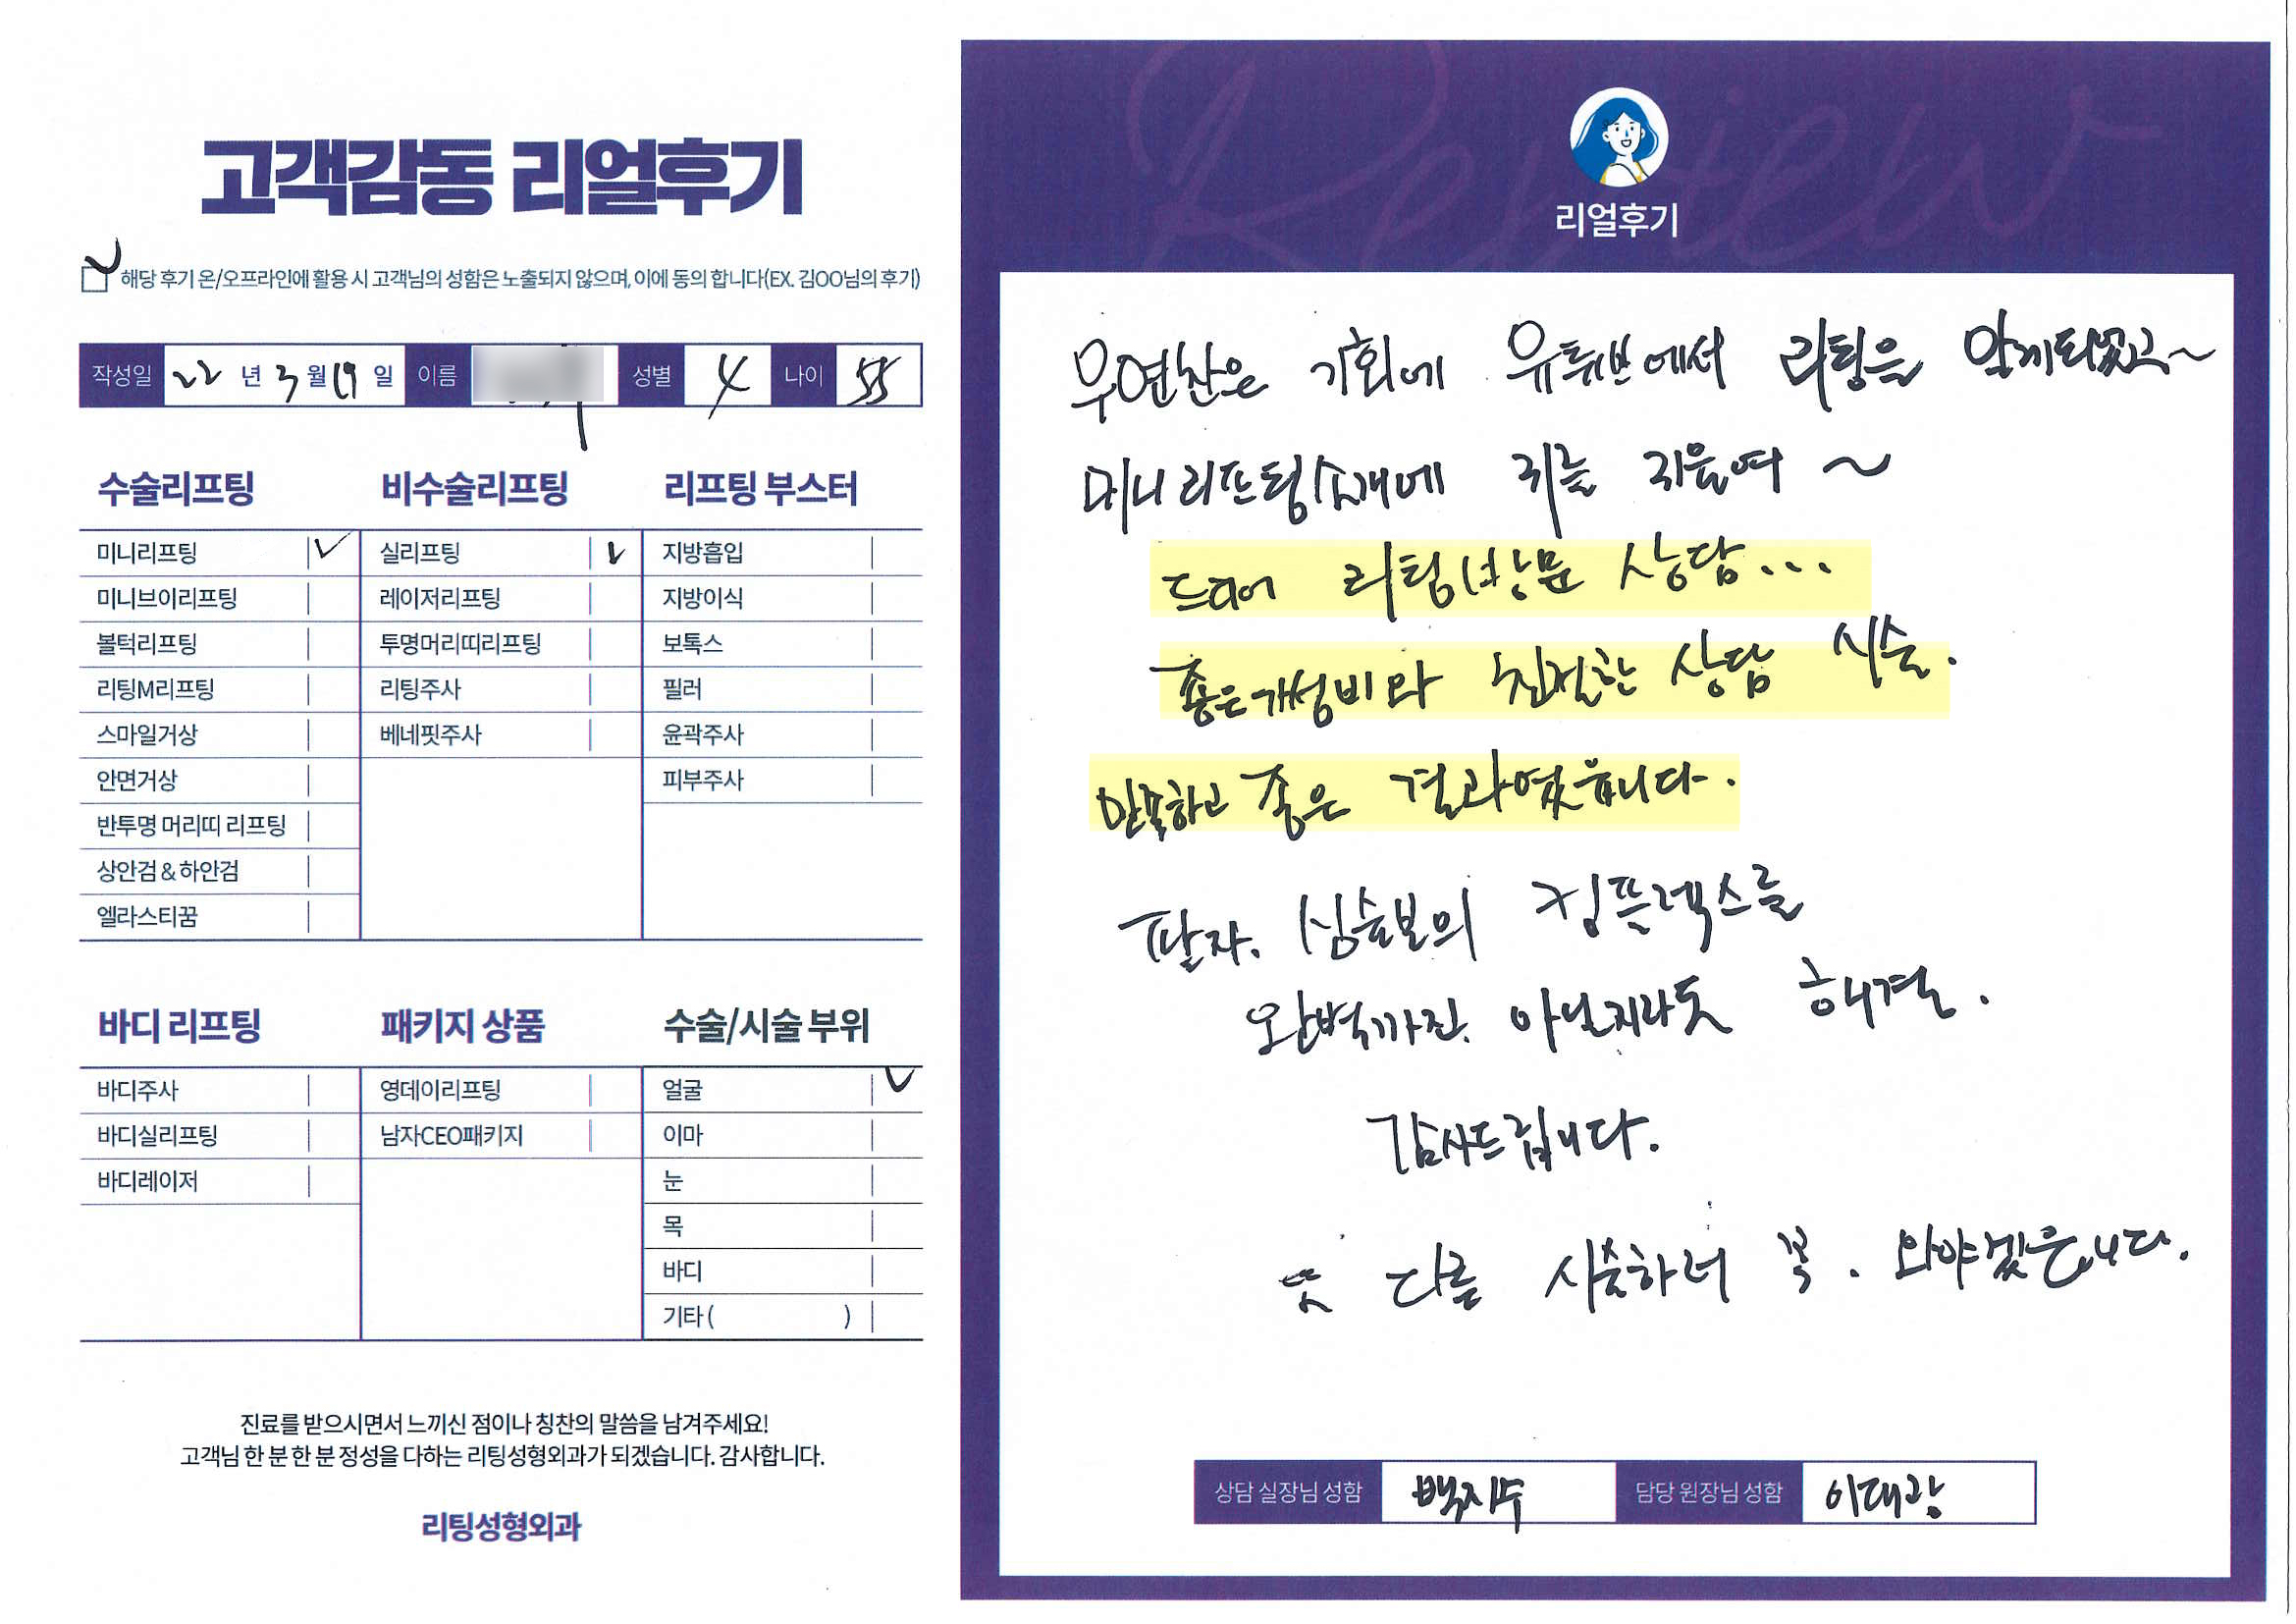 고객감동 리얼후기
해당 후기 온/오프라인에 활용 시 고객님의 성함은 노출되지 않으며, 이에 동의 합니다(EX. 김OO님의 후기)
작성일 22 년 3 월 19 일 이름 성별 나이 55
수술리프팅
미니리프팅
미니브이리프팅
볼턱리프팅
리팅M리프팅
스마일거상
안면거상
반투명 머리띠 리프팅
상안검 & 하안검
엘라스티꿈
비수술리프팅
실리프팅
레이저리프팅
투명머리띠리프팅
리팅주사
베네핏주사
리프팅 부스터
지방흡입
지방이식
보톡스
필러
윤곽주사
피부주사
바디 리프팅
바디주사
바디실리프팅
바디레이저
패키지 상품
영데이리프팅
남자CEO패키지
수술/시술 부위
얼굴
이마
눈
목
바디
기타 ( )
진료를 받으시면서 느끼신 점이나 칭찬의 말씀을 남겨주세요!
고객님 한 분 한 분 정성을 다하는 리팅성형외과가 되겠습니다. 감사합니다.
리팅성형외과
Review
리얼후기
우연찬은 기회에 유튜브에서 리팅을 알게되었고~
미니리프팅소개에 귀를 기울여 ~
드디어 리팅방문 상담...
좋은가성비와 친절한 상담 시술.
만족하고 좋은 결과였읍니다.
팔자. 심술보의 컴플렉스를
완벽까진. 아닐지라도 해결.
감사드립니다.
또 다른 시술하러 꼭. 와야겠읍니다.
상담 실장님 성함 백지수 담당 원장님 성함 이대광